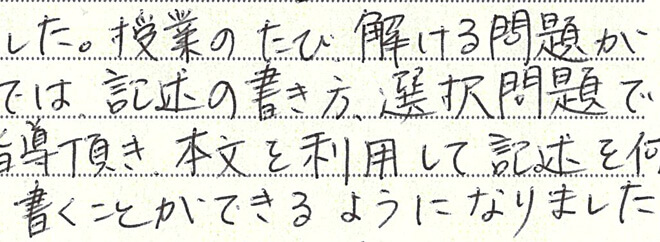 した。授業のたび、解ける問題が
では、記述の書き方、選択問題で
指導頂き、本文を利用して記述を何
書くことができるようになりました